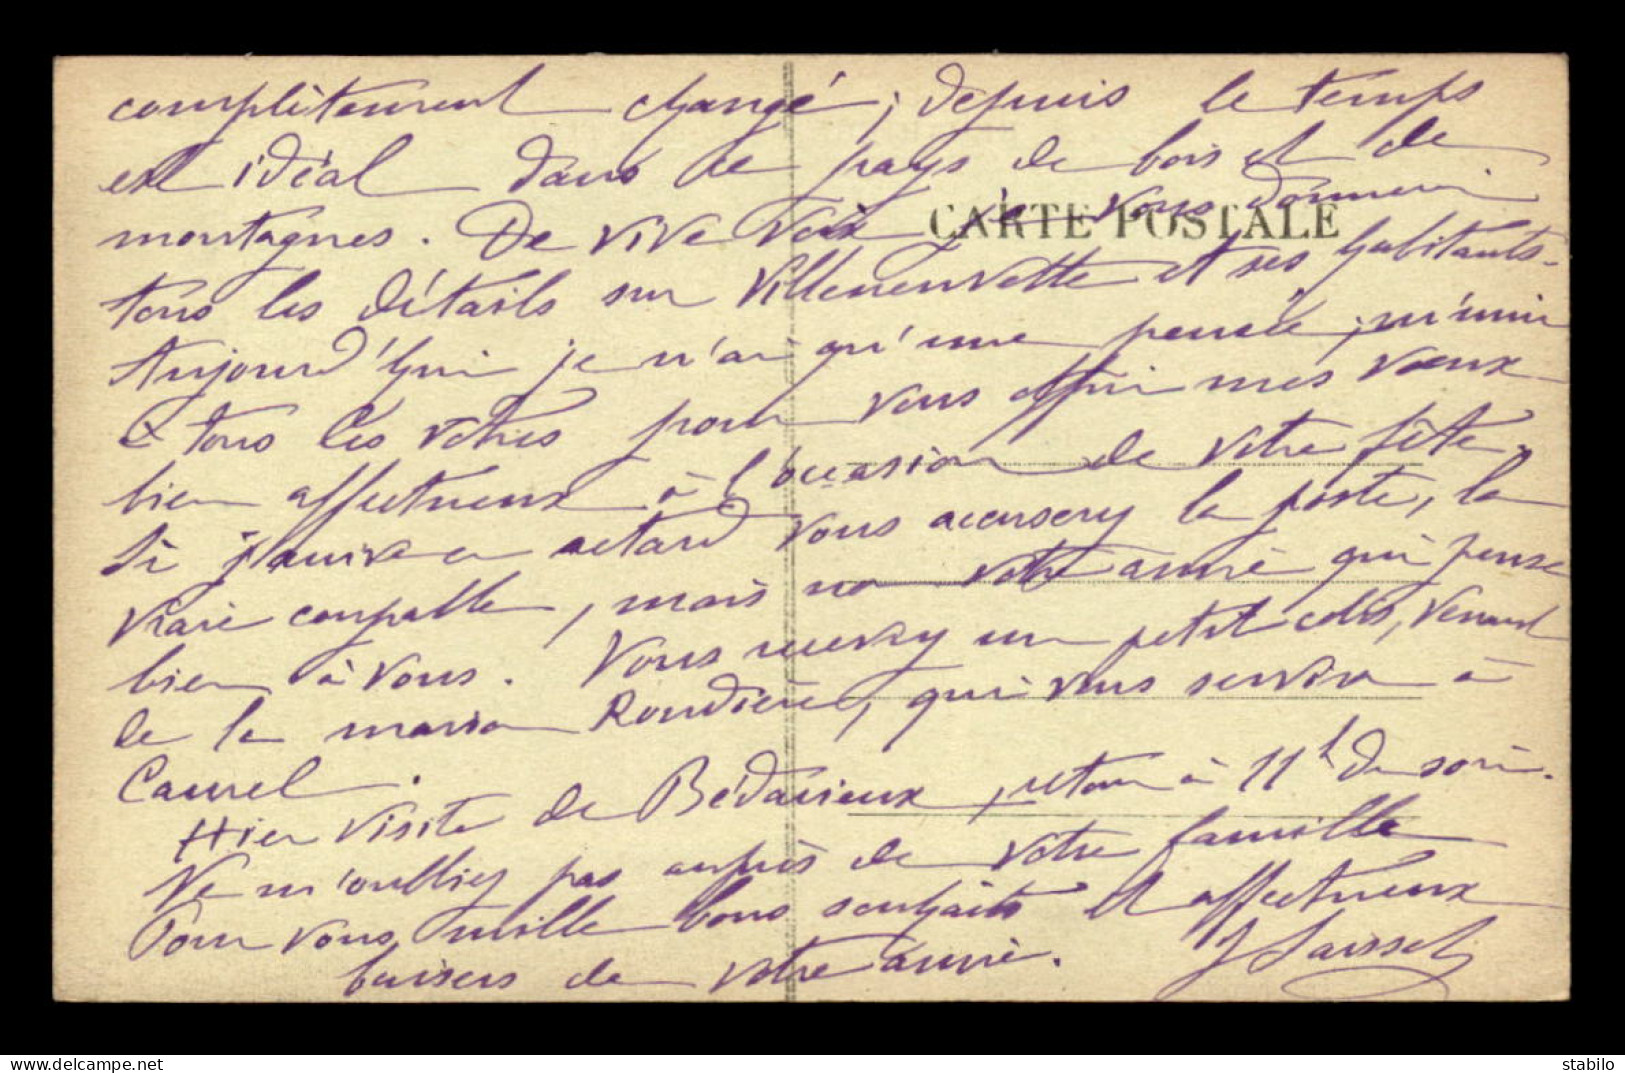 complètement changé ; depuis le temps
est idéal dans ce pays de bois et de
montagnes. De vive voix je vous donnerai
CARTE POSTALE
tous les détails sur Villeneuvette et ses habitants.
Aujourd'hui je n'ai qu'une pensée, m'unir
à tous les vôtres pour vous offrir mes vœux
bien affectueux à l'occasion de votre fête.
Si j'arrive en retard vous accuserez la poste, la
vraie coupable, mais non votre amie qui pense
bien à vous. Vous recevrez un petit colis, venant
de la maison Rondière, qui vous servira à
Hier visite de Bédarieux, retour à 11h du soir.
Ne m'oubliez pas auprès de votre famille
Pour vous mille bons souhaits et affectueux
baisers de votre amie. J Saisset
delcampe.net
stabilo